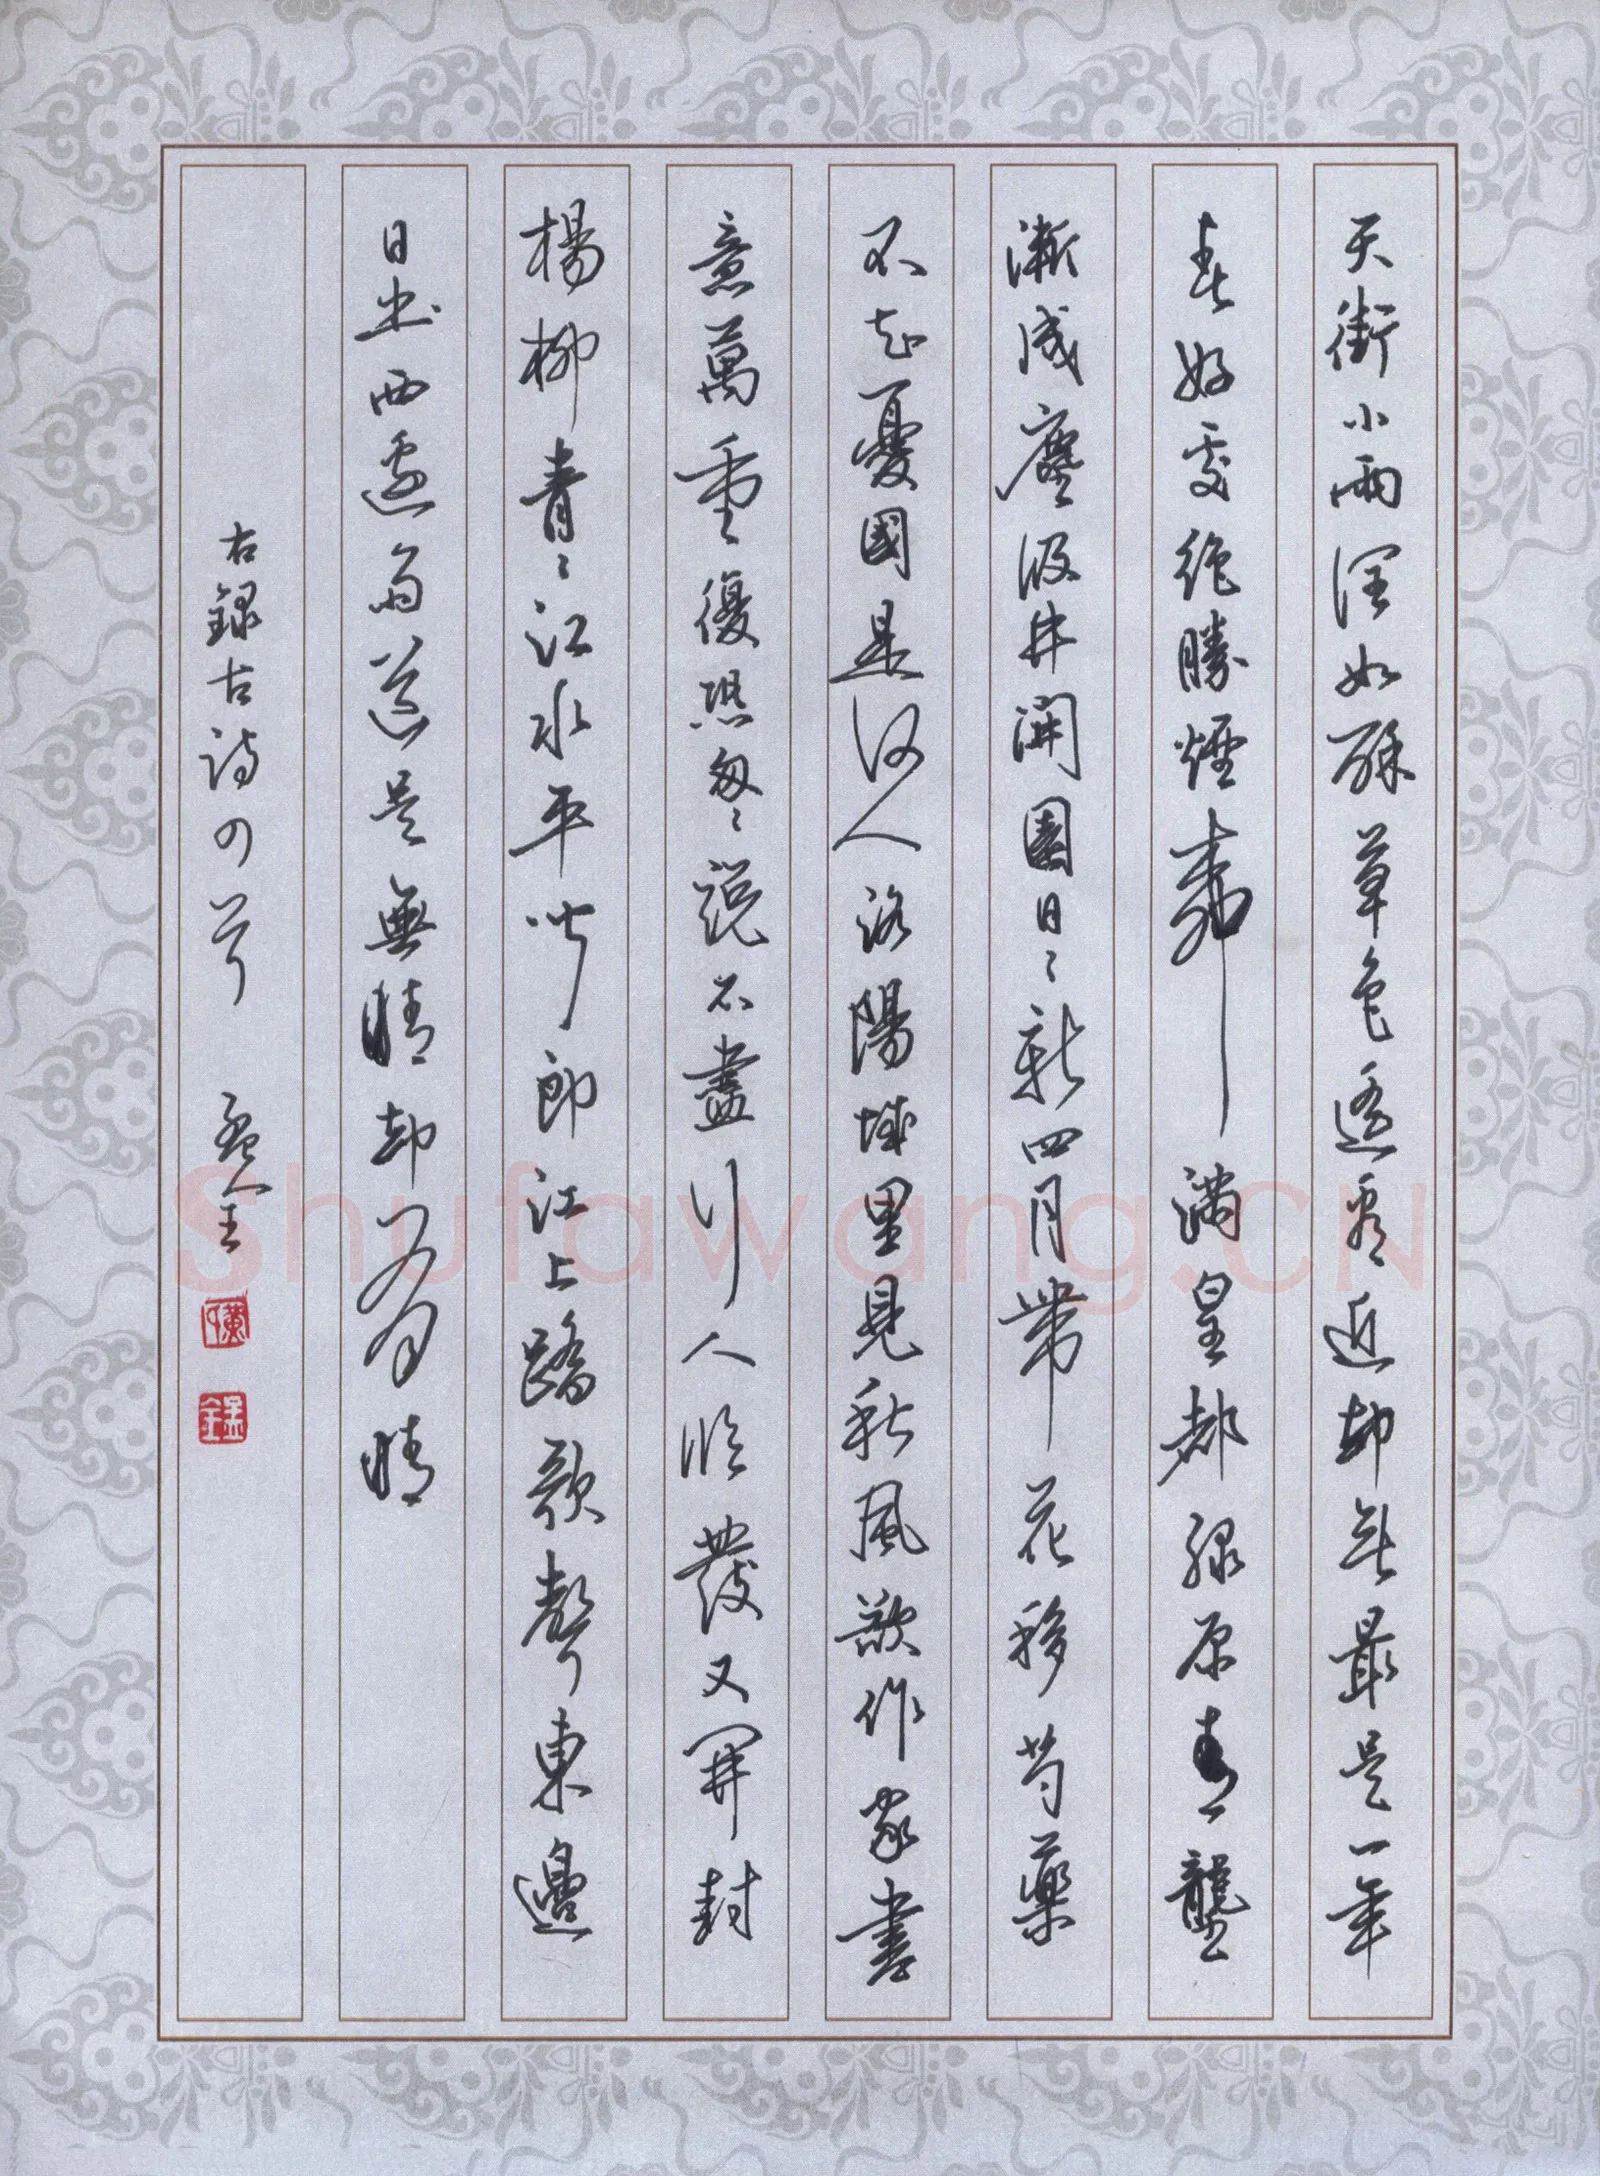 天街小雨潤如酥草色遙看近却無最是一年
春好處絕勝煙柳滿皇都綠原青壟
漸成塵汲井開園日〻新四月帶花移芍藥
不知憂國是何人洛陽城里見秋風欲作家書
意萬重復恐匆〻說不盡行人臨發又開封
楊柳青〻江水平聞郎江上踏歌聲東邊
日出西邊雨道是無情却有情
右錄古詩四首 孟全
孟全
Shufawang.CN